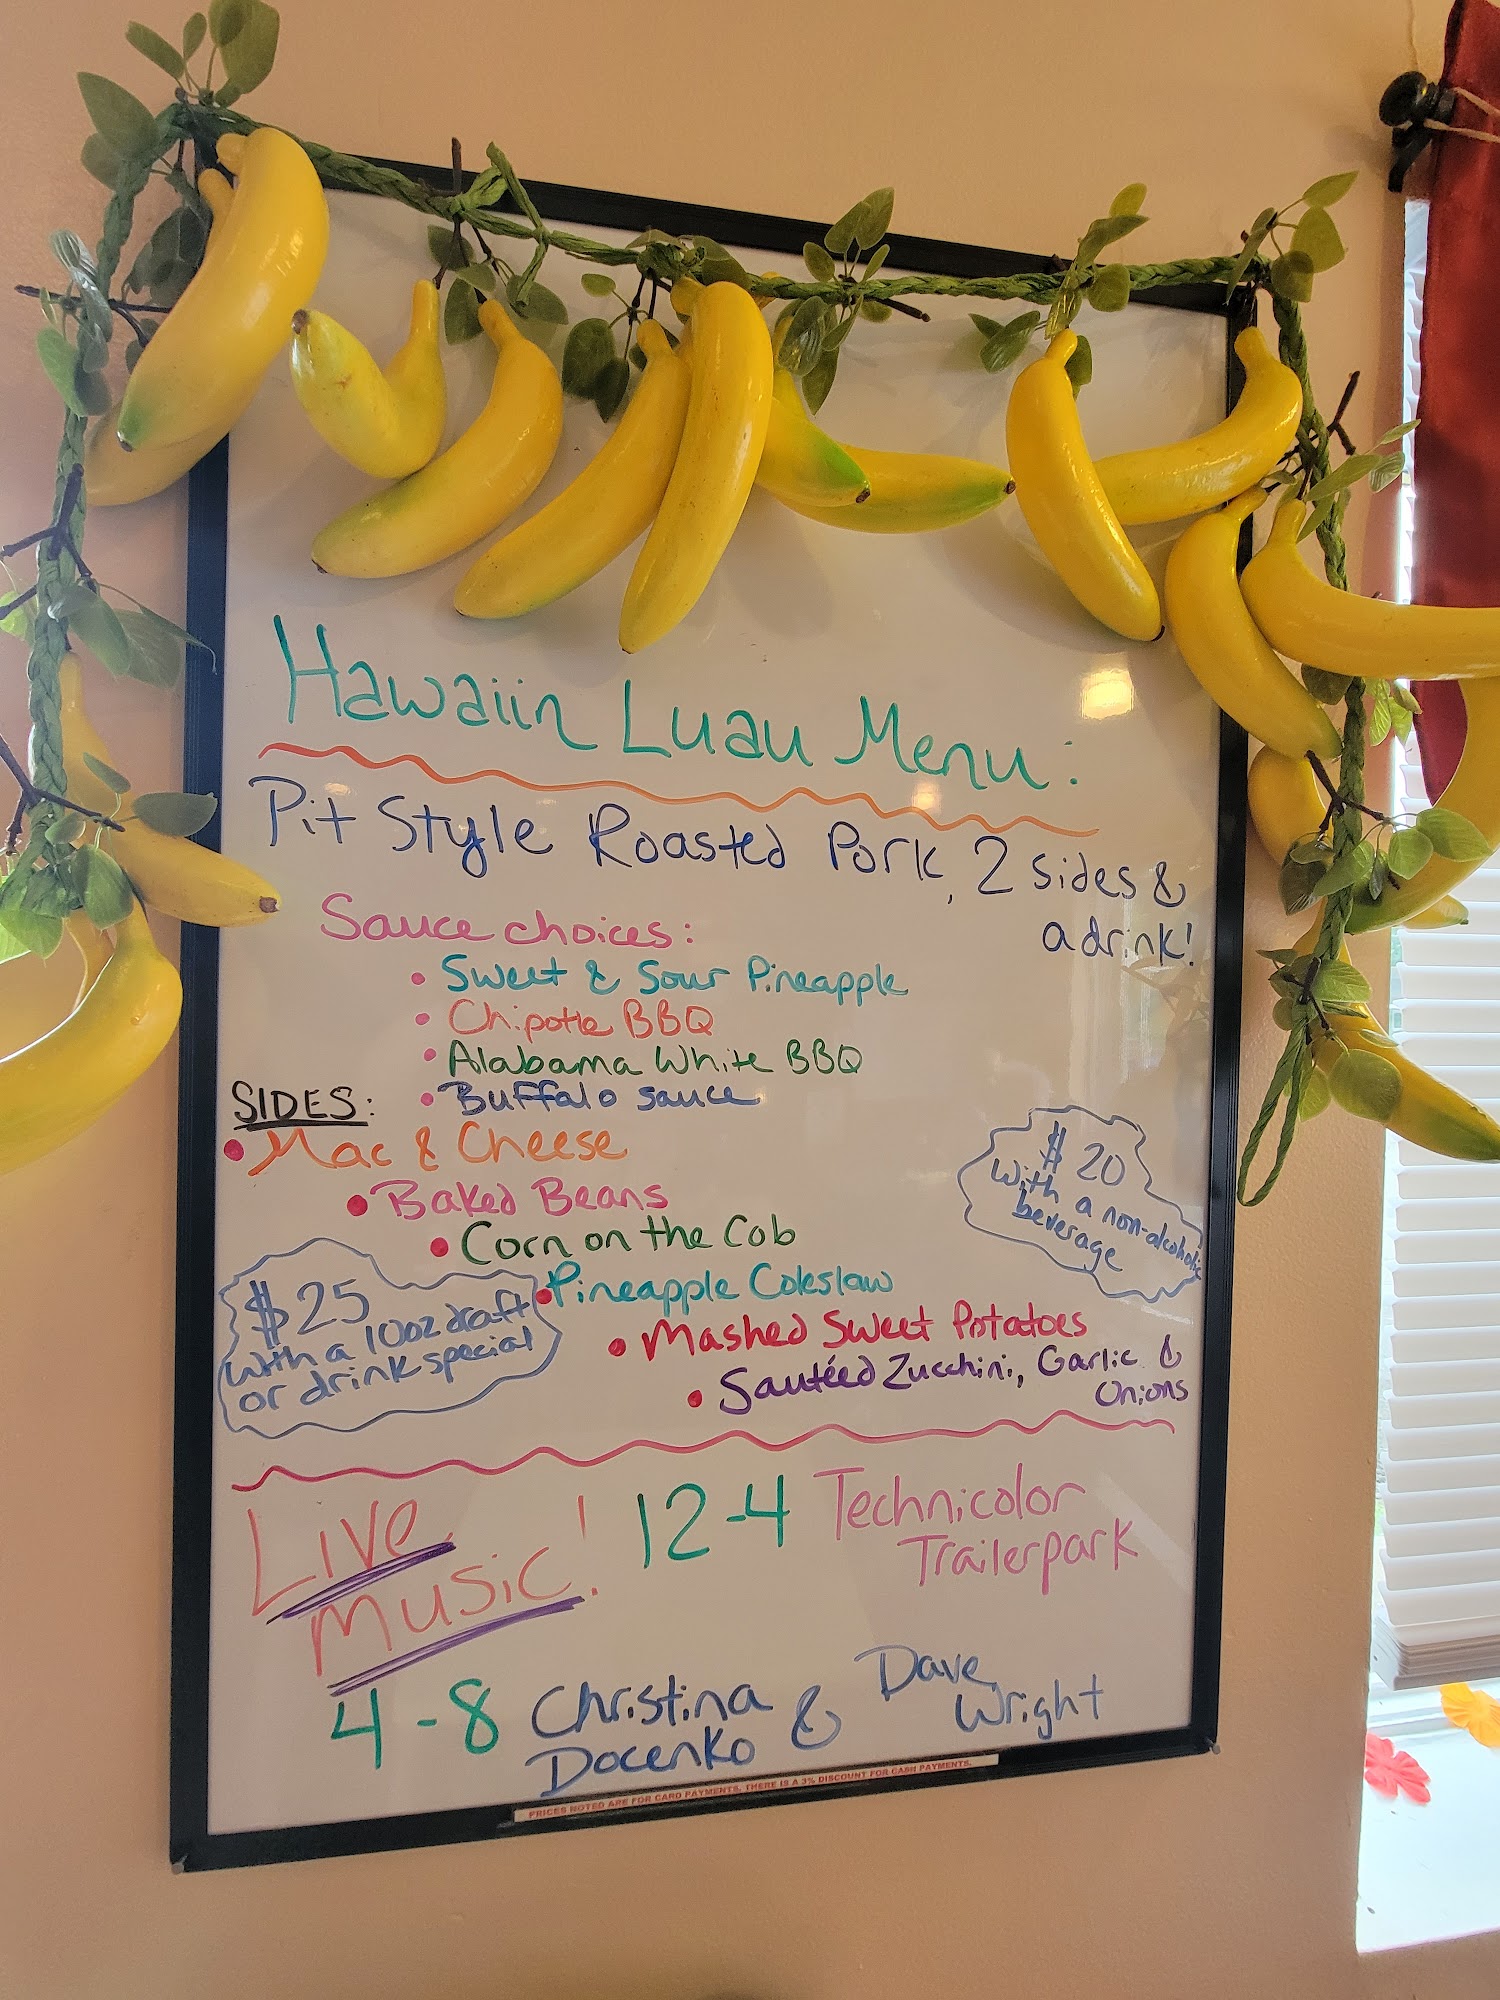 Hawaiin Luau Menu:
Pit Style Roasted Pork, 2 sides &
a drink!
Sauce choices:
• Sweet & Sour Pineapple
• Chipotle BBQ
• Alabama White BBQ
• Buffalo sauce
SIDES:
• Mac & Cheese
• Baked Beans
• Corn on the Cob
• Pineapple Coleslaw
• Mashed Sweet Potatoes
• Sautéed Zucchini, Garlic &
Onions
$20
with a non-alcoholic
beverage
$25
with a 10oz draft
or drink special
Live
Music!
12-4 Technicolor
Trailerpark
4-8 Christina
Docenko & Dave
Wright
PRICES NOTED ARE FOR CARD PAYMENTS. THERE IS A 3% DISCOUNT FOR CASH PAYMENTS.